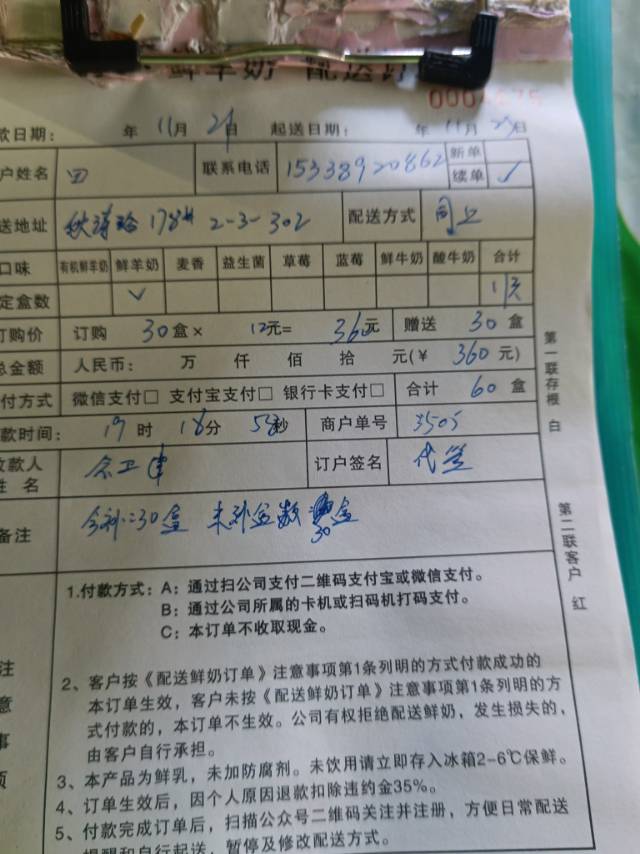 鲜羊奶 配送订
款日期: 年 11月 日 起送日期: 年 11月 日
户姓名 田 联系电话 15338920862 新单
续单 ✓
送地址 178# 2-3-302 配送方式 同上
口味 有机鲜羊奶 鲜羊奶 麦香 益生菌 草莓 蓝莓 鲜牛奶 酸牛奶 合计
定盒数 ✓ 1天
订购价 订购 30盒× 12元= 360元 赠送 30盒
总金额 人民币: 万 仟 佰 拾 元(￥ 360元)
付方式 微信支付□ 支付宝支付□ 银行卡支付□ 合计 60盒
款时间: 19时 18分 58秒 商户单号 3505
收款人
姓 名 订户签名 代签
备注 今补:30盒 未补盒数 30盒
1.付款方式: A: 通过扫公司支付二维码支付宝或微信支付。
B: 通过公司所属的卡机或扫码机打码支付。
C: 本订单不收取现金。
2、客户按《配送鲜奶订单》注意事项第1条列明的方式付款成功的
本订单生效，客户未按《配送鲜奶订单》注意事项第1条列明的方
式付款的，本订单不生效。公司有权拒绝配送鲜奶，发生损失的，
由客户自行承担。
3、本产品为鲜乳，未加防腐剂。未饮用请立即存入冰箱2-6℃保鲜。
4、订单生效后，因个人原因退款扣除违约金35%。
5、付款完成订单后，扫描公众号二维码关注并注册，方便日常配送
提醒和自行起送、暂停及修改配送方式。
注
意
事
项
第一联存根 白
第二联客户 红